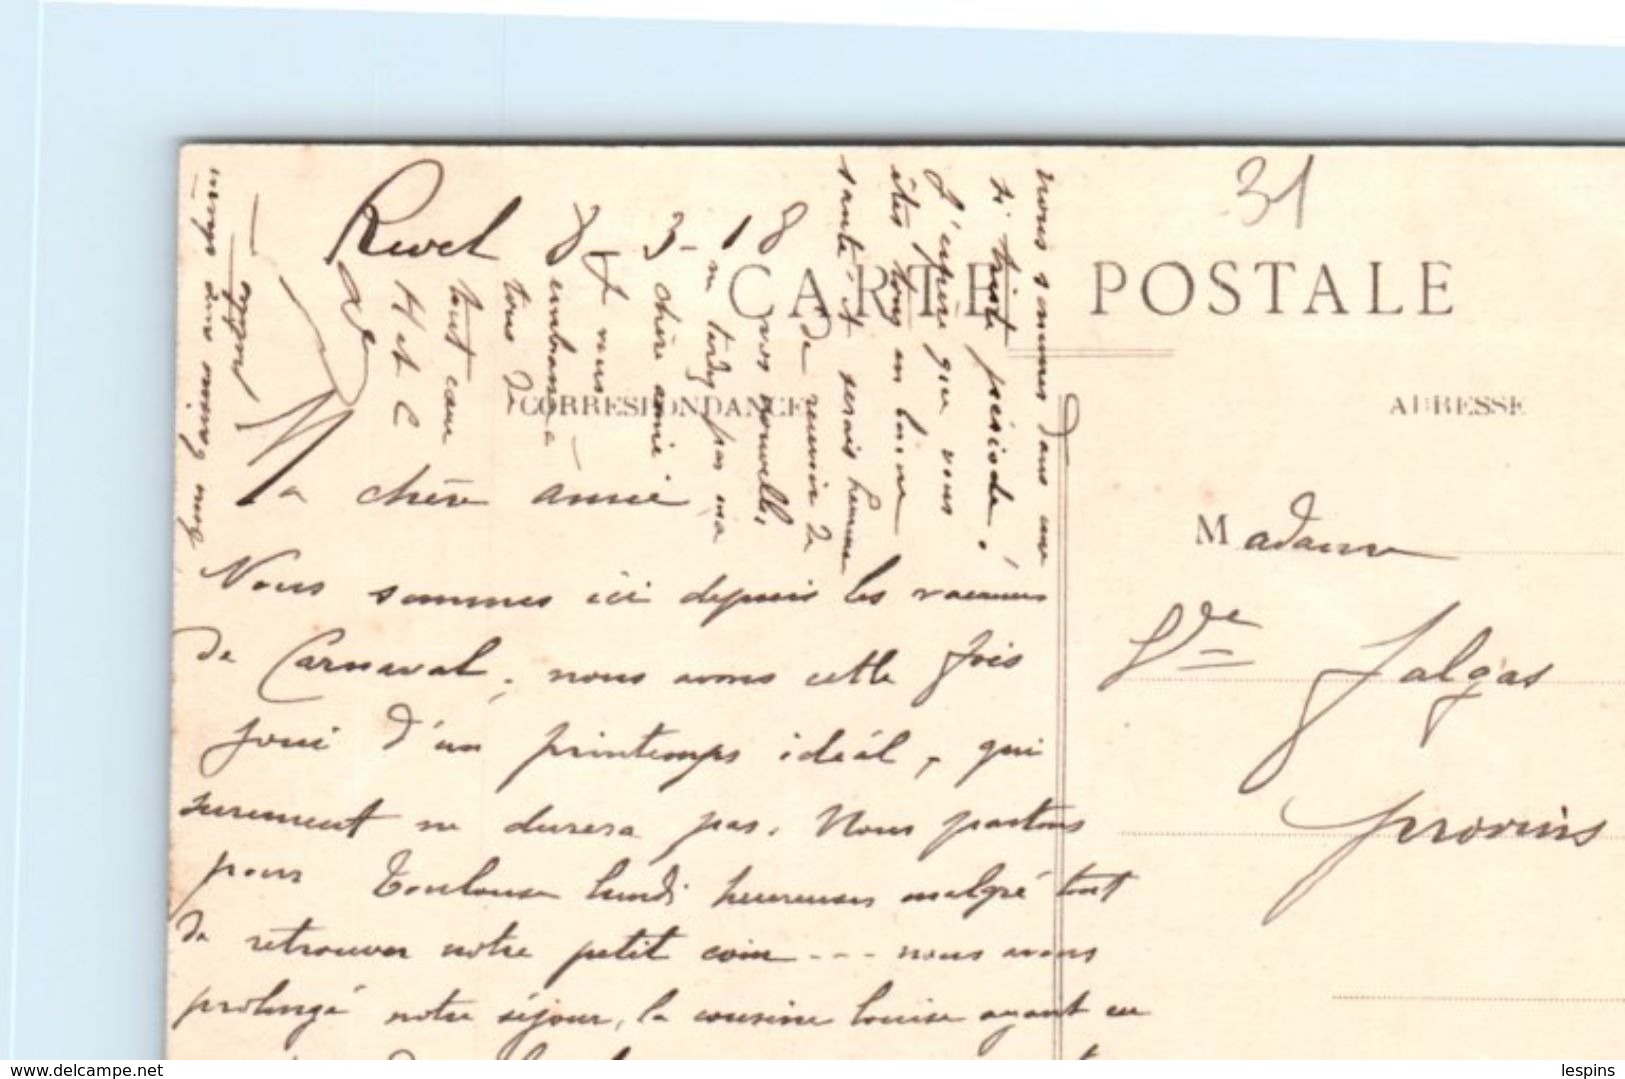 Revel 8-3-18
31
CARTE POSTALE
CORRESPONDANCE
ADRESSE
Ma chère amie
Nous sommes ici depuis les vacances
de Carnaval, nous avons cette fois
joui d'un printemps idéal, qui
surement ne durera pas. Nous partons
pour Toulouse lundi heureuses malgré tout
de retrouver notre petit coin --- nous avons
prolongé notre séjour, la cousine Louise ayant eu
nous sommes dans une
si triste période.
J'espère que vous
êtes tous en bonne
santé et serais heureuse
de recevoir de
vos nouvelles,
ne tardez pas ma
chère amie
Je vous
embrasse
tous de
tout cœur
H et C
bons baisers aux chères
petites
Madame
Vve Jalgas
Provins
lespins
www.delcampe.net